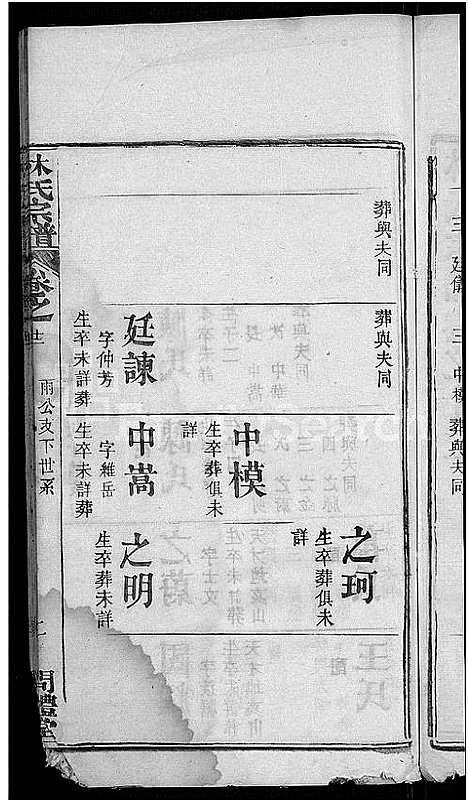 三
廷儀
三
中模
葬與夫同
葬與夫同
葬與夫同
中模
生卒葬俱未
詳
之珂
生卒葬俱未
詳
廷諫
字仲芳
生卒未詳
中嵩
字維岳
生卒未詳葬
之明
生卒葬未詳
林氏宗譜
卷之
雨公支下世系
問禮堂